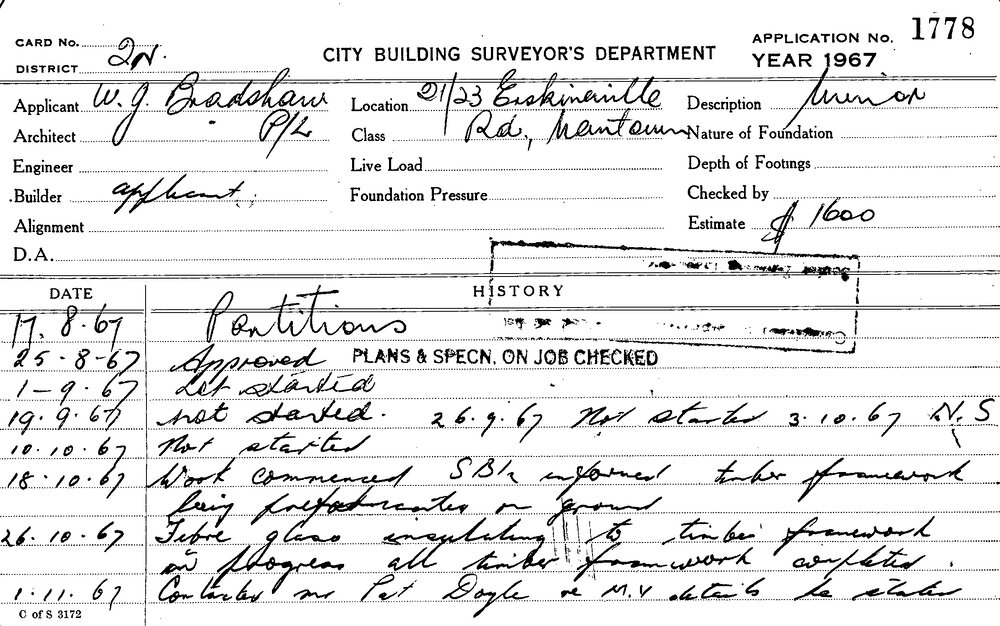 CARD No. 2N. CITY BUILDING SURVEYOR'S DEPARTMENT APPLICATION No. 1778
DISTRICT YEAR 1967
Applicant W. J. Bradshaw Location 21/23 Erskineville Description Minor
Architect P/L Class Rd., Nature of Foundation
Engineer Live Load Depth of Footings
Builder applicant. Foundation Pressure Checked by
Alignment Estimate $ 1600
D.A.
DATE HISTORY
17. 8. 67 Partitions
25-8-67 Approved PLANS & SPECN. ON JOB CHECKED
1-9.67 started
19.9.67 not started. 26.9.67 Not started 3.10.67 N.S
10.10.67 Not started
18.10.67 Work commenced informed timber framework
being on ground
26.10.67 Fibre glass insulating to timber framework
in progress all timber framework completed.
1.11.67 Contacted mr Pat Doyle re M.V details he states
C of S 3172